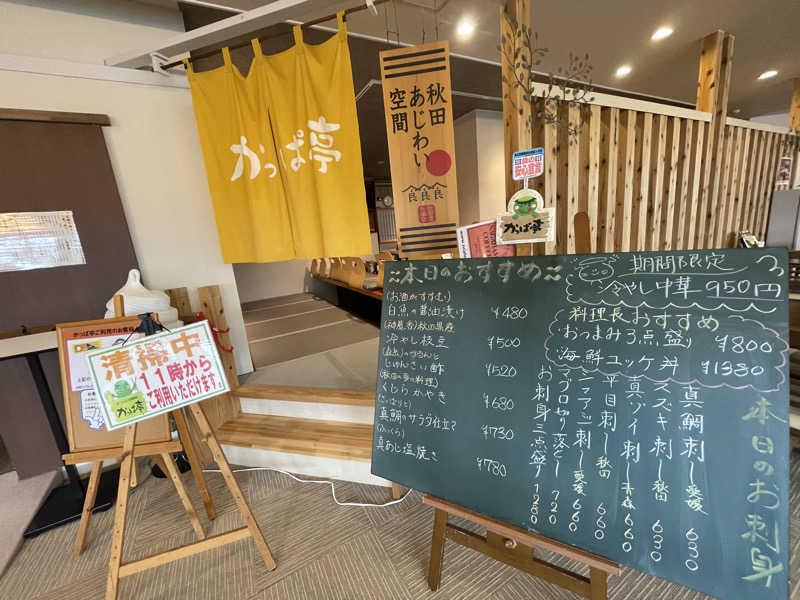 かっぱ亭
秋田
あじわい
空間
良良良
かっぱ亭
かっぱ亭ご利用のお客様へ
清掃中
11時から
ご利用いただけます。
かっぱ亭
本日のおすすめ
(お酒がすすむ)
白魚の醤油漬け ¥480
冷やし枝豆 ¥500
じゅんさい酢 ¥520
(秋田の夏の料理)
くじらかやき ¥680
(さっぱりと)
真鯛のサラダ仕立て ¥730
(ふっくら)
真あじ塩焼き ¥780
期間限定
冷やし中華 950円
料理長おすすめ
おつまみ3点盛り ¥800
海鮮ユッケ丼 ¥1380
本日のお刺身
真鯛刺し 愛媛 630
スズキ刺し 秋田 630
真ゾイ刺し 青森 660
平目刺し 秋田 660
シマアジ刺し 愛媛 660
マグロ切り落とし 720
お刺身三点盛り 1280